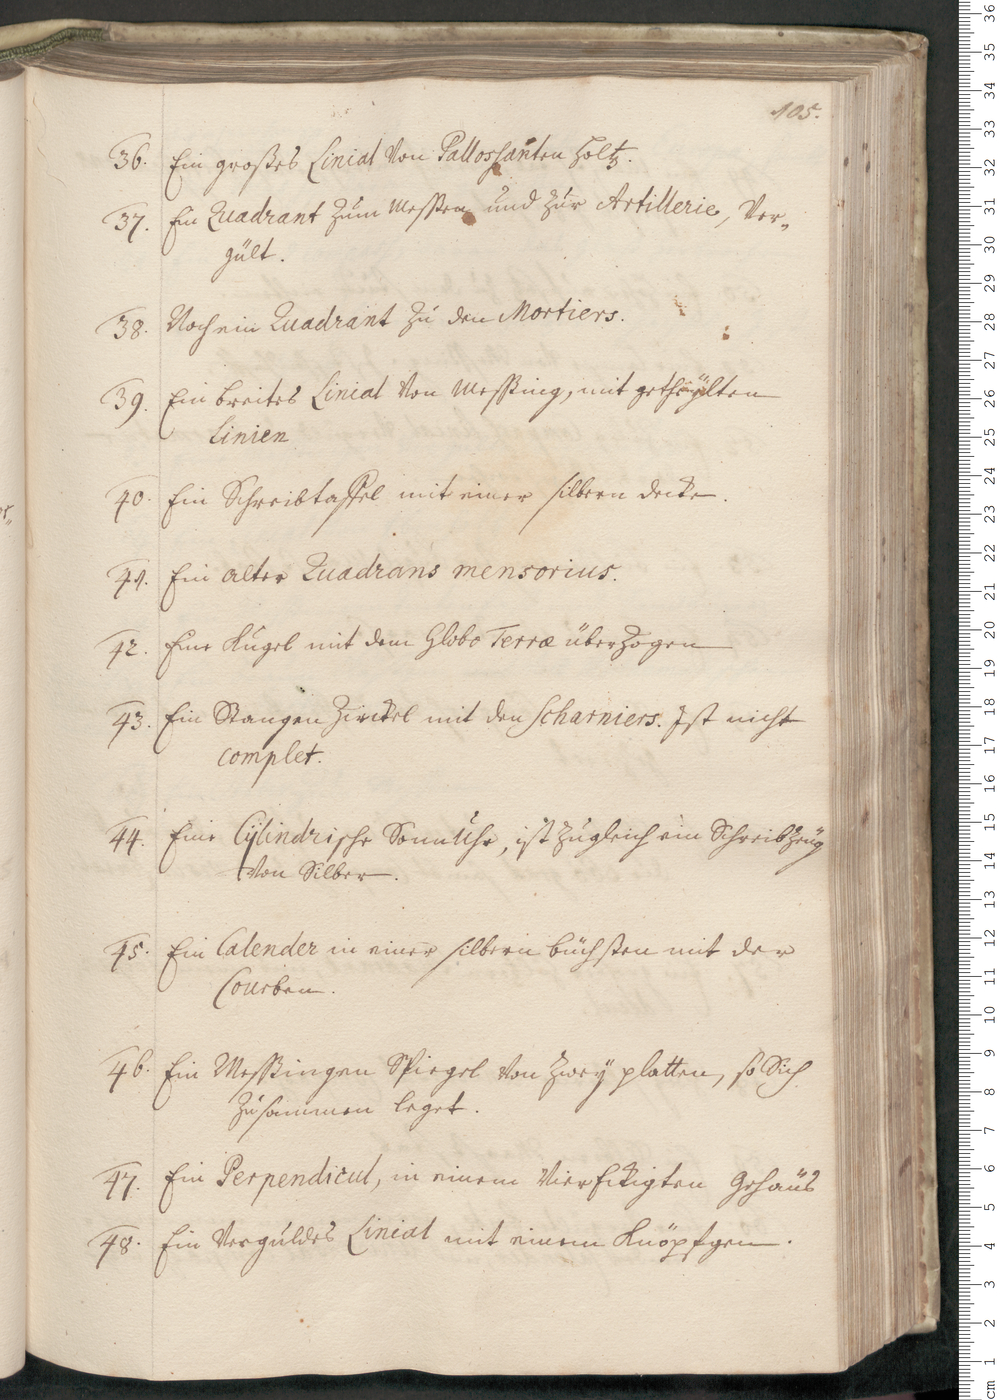 105.
36. Ein großes Linial von Pallossanten Holtz.
37. Ein Quadrant zum Messen und zur Artillerie, Ver„
gült.
38. Noch ein Quadrant zu den Mortiers.
39. Ein breites Linial von Messing, mit getheylten
Linien
40. Ein Schreibtaffel mit einer silbern decke.
41. Ein alter Quadrans mensorius.
42. Eine Kugel mit dem Globo Terræ überzogen
43. Ein Stangen Zirckel mit den Scharniers. Ist nicht
complet.
44. Eine Cylindrische SonnUhr, ist zugleich ein Schreibzeüg
von Silber.
45. Ein Calender in einer silbern büchsten mit der
Courben.
46. Ein Messingen Spiegel von zweÿ platten, so Sich
zusammen leget.
47. Ein Perpendicul, in einem Vier Eckigten Gehäus
48. Ein Verguldes Linial mit einem Knöpfgen.